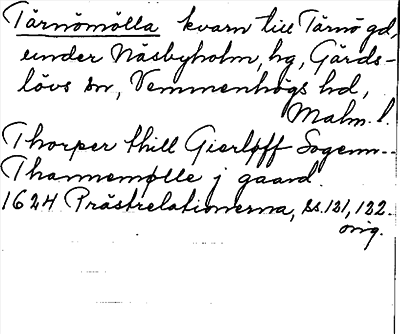 Tärnömölla kvarn till Tärnö gd,
under Näsbyholm, hg, Gärds-
lövs sn, Vemmenhögs hd,
Malm. l.
Thorper thill Gierløff Sogenn..
Thannemølle j gaard.
1624 Prästrelationerna, ss. 131, 132.
orig.